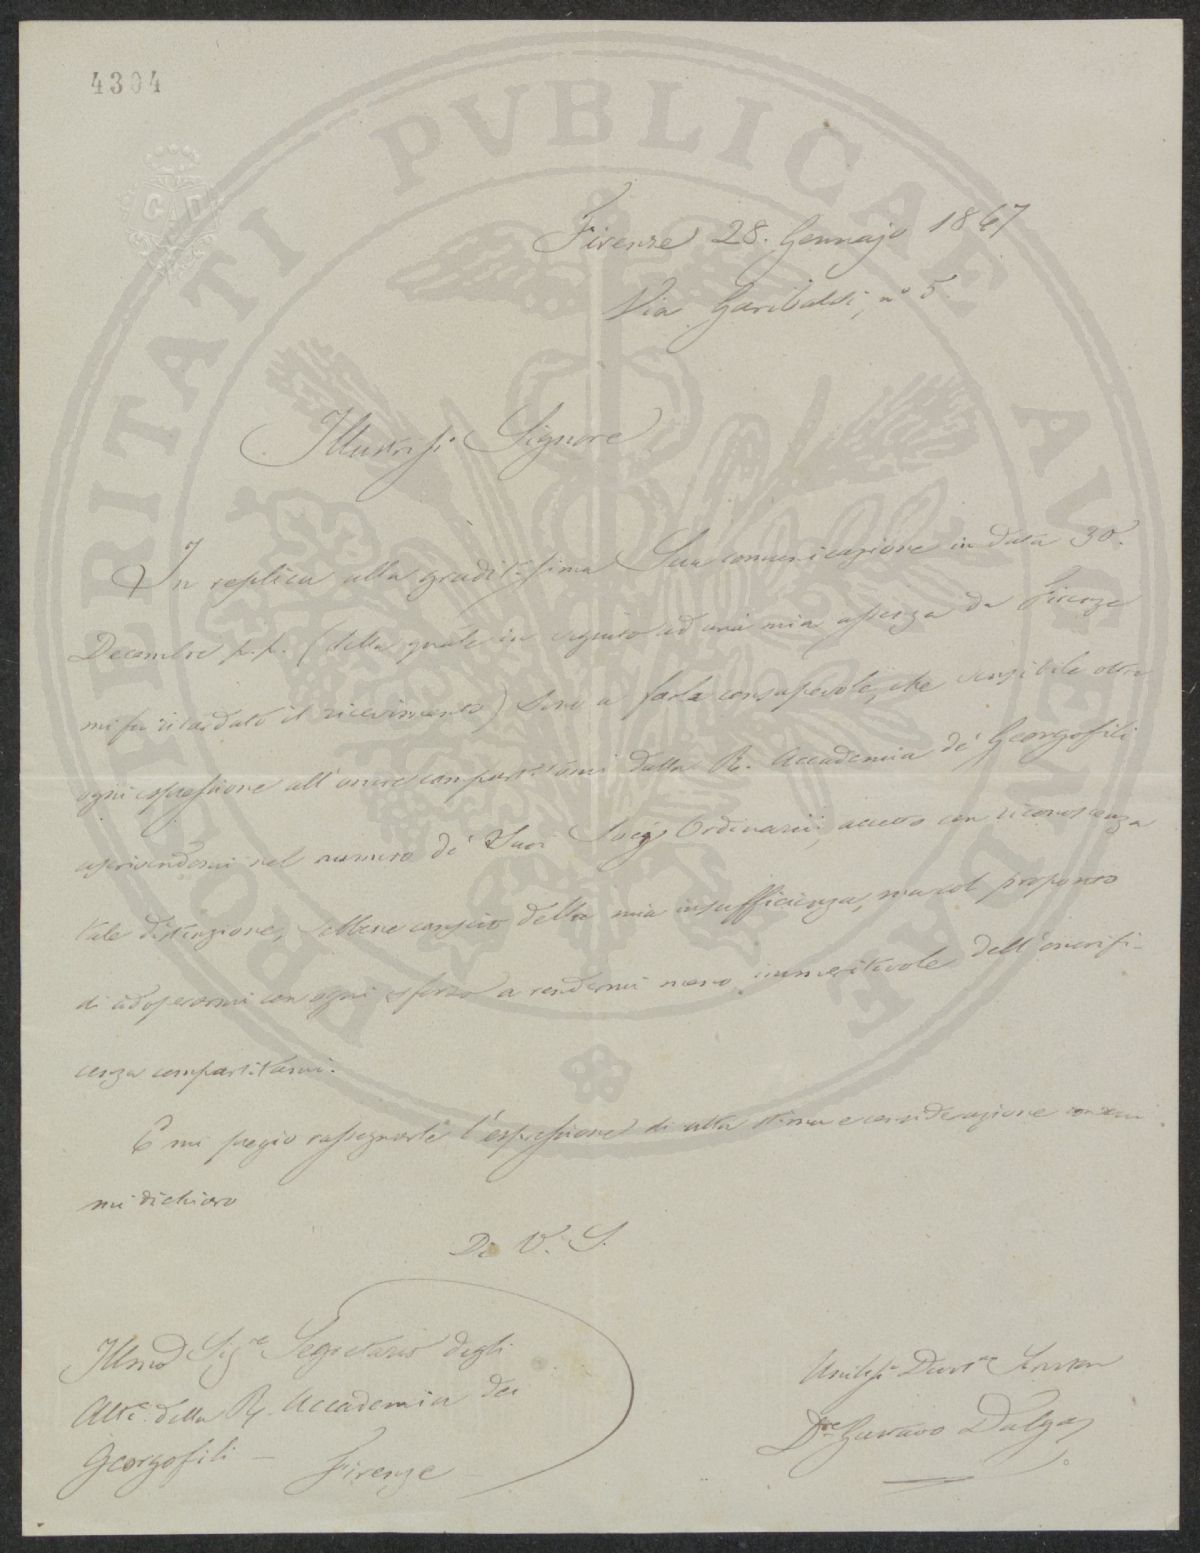 4304
PROSPERITATI PVBLICAE AVGENDAE
Firenze 28. Gennajo 1867
Via Garibaldi, n° 5
Illustrisso Signore
In replica alla graditissima Sua comunicazione in data 30.
Decembre p.p. (della quale in seguito ad una mia assenza da Firenze
mi fu ritardato il ricevimento) sono a farla consapevole, che sensibile oltre
ogni espressione all'onore compartitomi dalla R. Accademia de' Georgofili
ascrivendomi nel numero de' Suoi Socij Ordinarii, accetto con riconoscenza
tale distinzione, sebbene conscio della mia insufficienza, ma col proposito
di adoperarmi con ogni sforzo a rendermi meno immeritevole dell'onorifi-
cenza compartitami.
E mi pregio rassegnarle l'espressione di alta stima e considerazione
mi dichiaro
Di V. S.
Illmo Sigre Segretario degli
Atti della R. Accademia dei
Georgofili — Firenze —
Umilisso Devmo
Dre Gustavo Dalgas